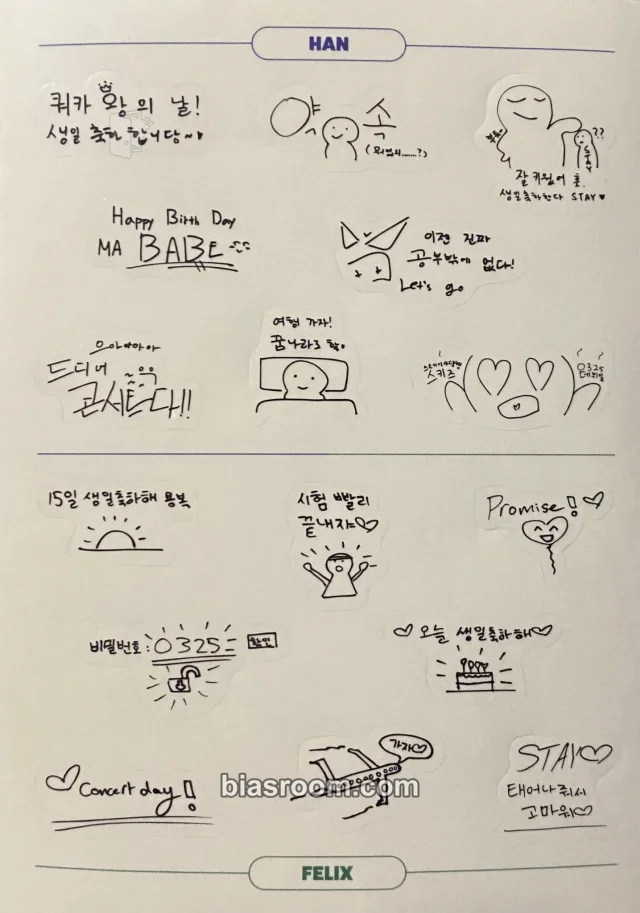 HAN
쿼카 왕의 날!
생일 축하합니당~♥
약속
(뭐였지......?)
??
잘 키웠어 훗.
생일축하한다 STAY♥
Happy Birth Day
MA BABE
이젠 진짜
공부밖에 없다!
Let's go
으아아아아
드디어
콘서트다!!
여행 가자!
꿈나라로
스키즈
0325
15일 생일축하해 용복
시험 빨리
끝내쟈♡
Promise! ♡
비밀번호: 0325 확인
♡ 오늘 생일축하해♡
♡ Concert day!
가쟈♡
biasroom.com
STAY♡
태어나줘서
고마워♡
FELIX